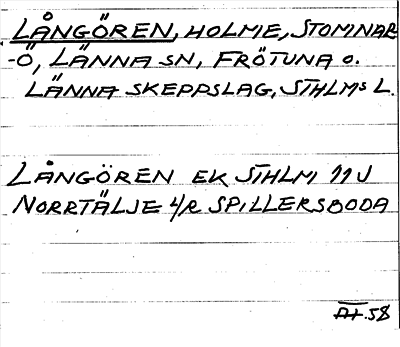 LÅNGÖREN, HOLME, STOMNAR
-Ö, LÄNNA SN, FRÖTUNA O.
LÄNNA SKEPPSLAG, STHLMS L.
LÅNGÖREN EK STHLM 11J
NORRTÄLJE 4/R SPILLERSBODA
58